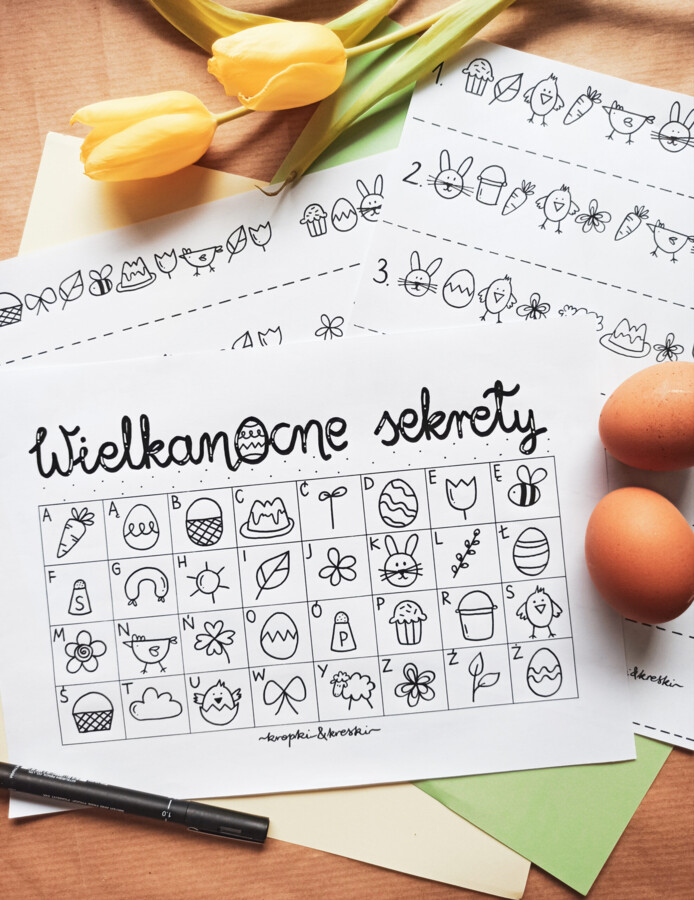 1.
2.
3.
Wielkanocne sekrety
A Ą B C Ć D E Ę
F G H I J K L Ł
S
M N Ń O Ó P R S
P
Ś T U W Y Z Ź Ż
~kropki&kreski~
i&kreski~
1.0